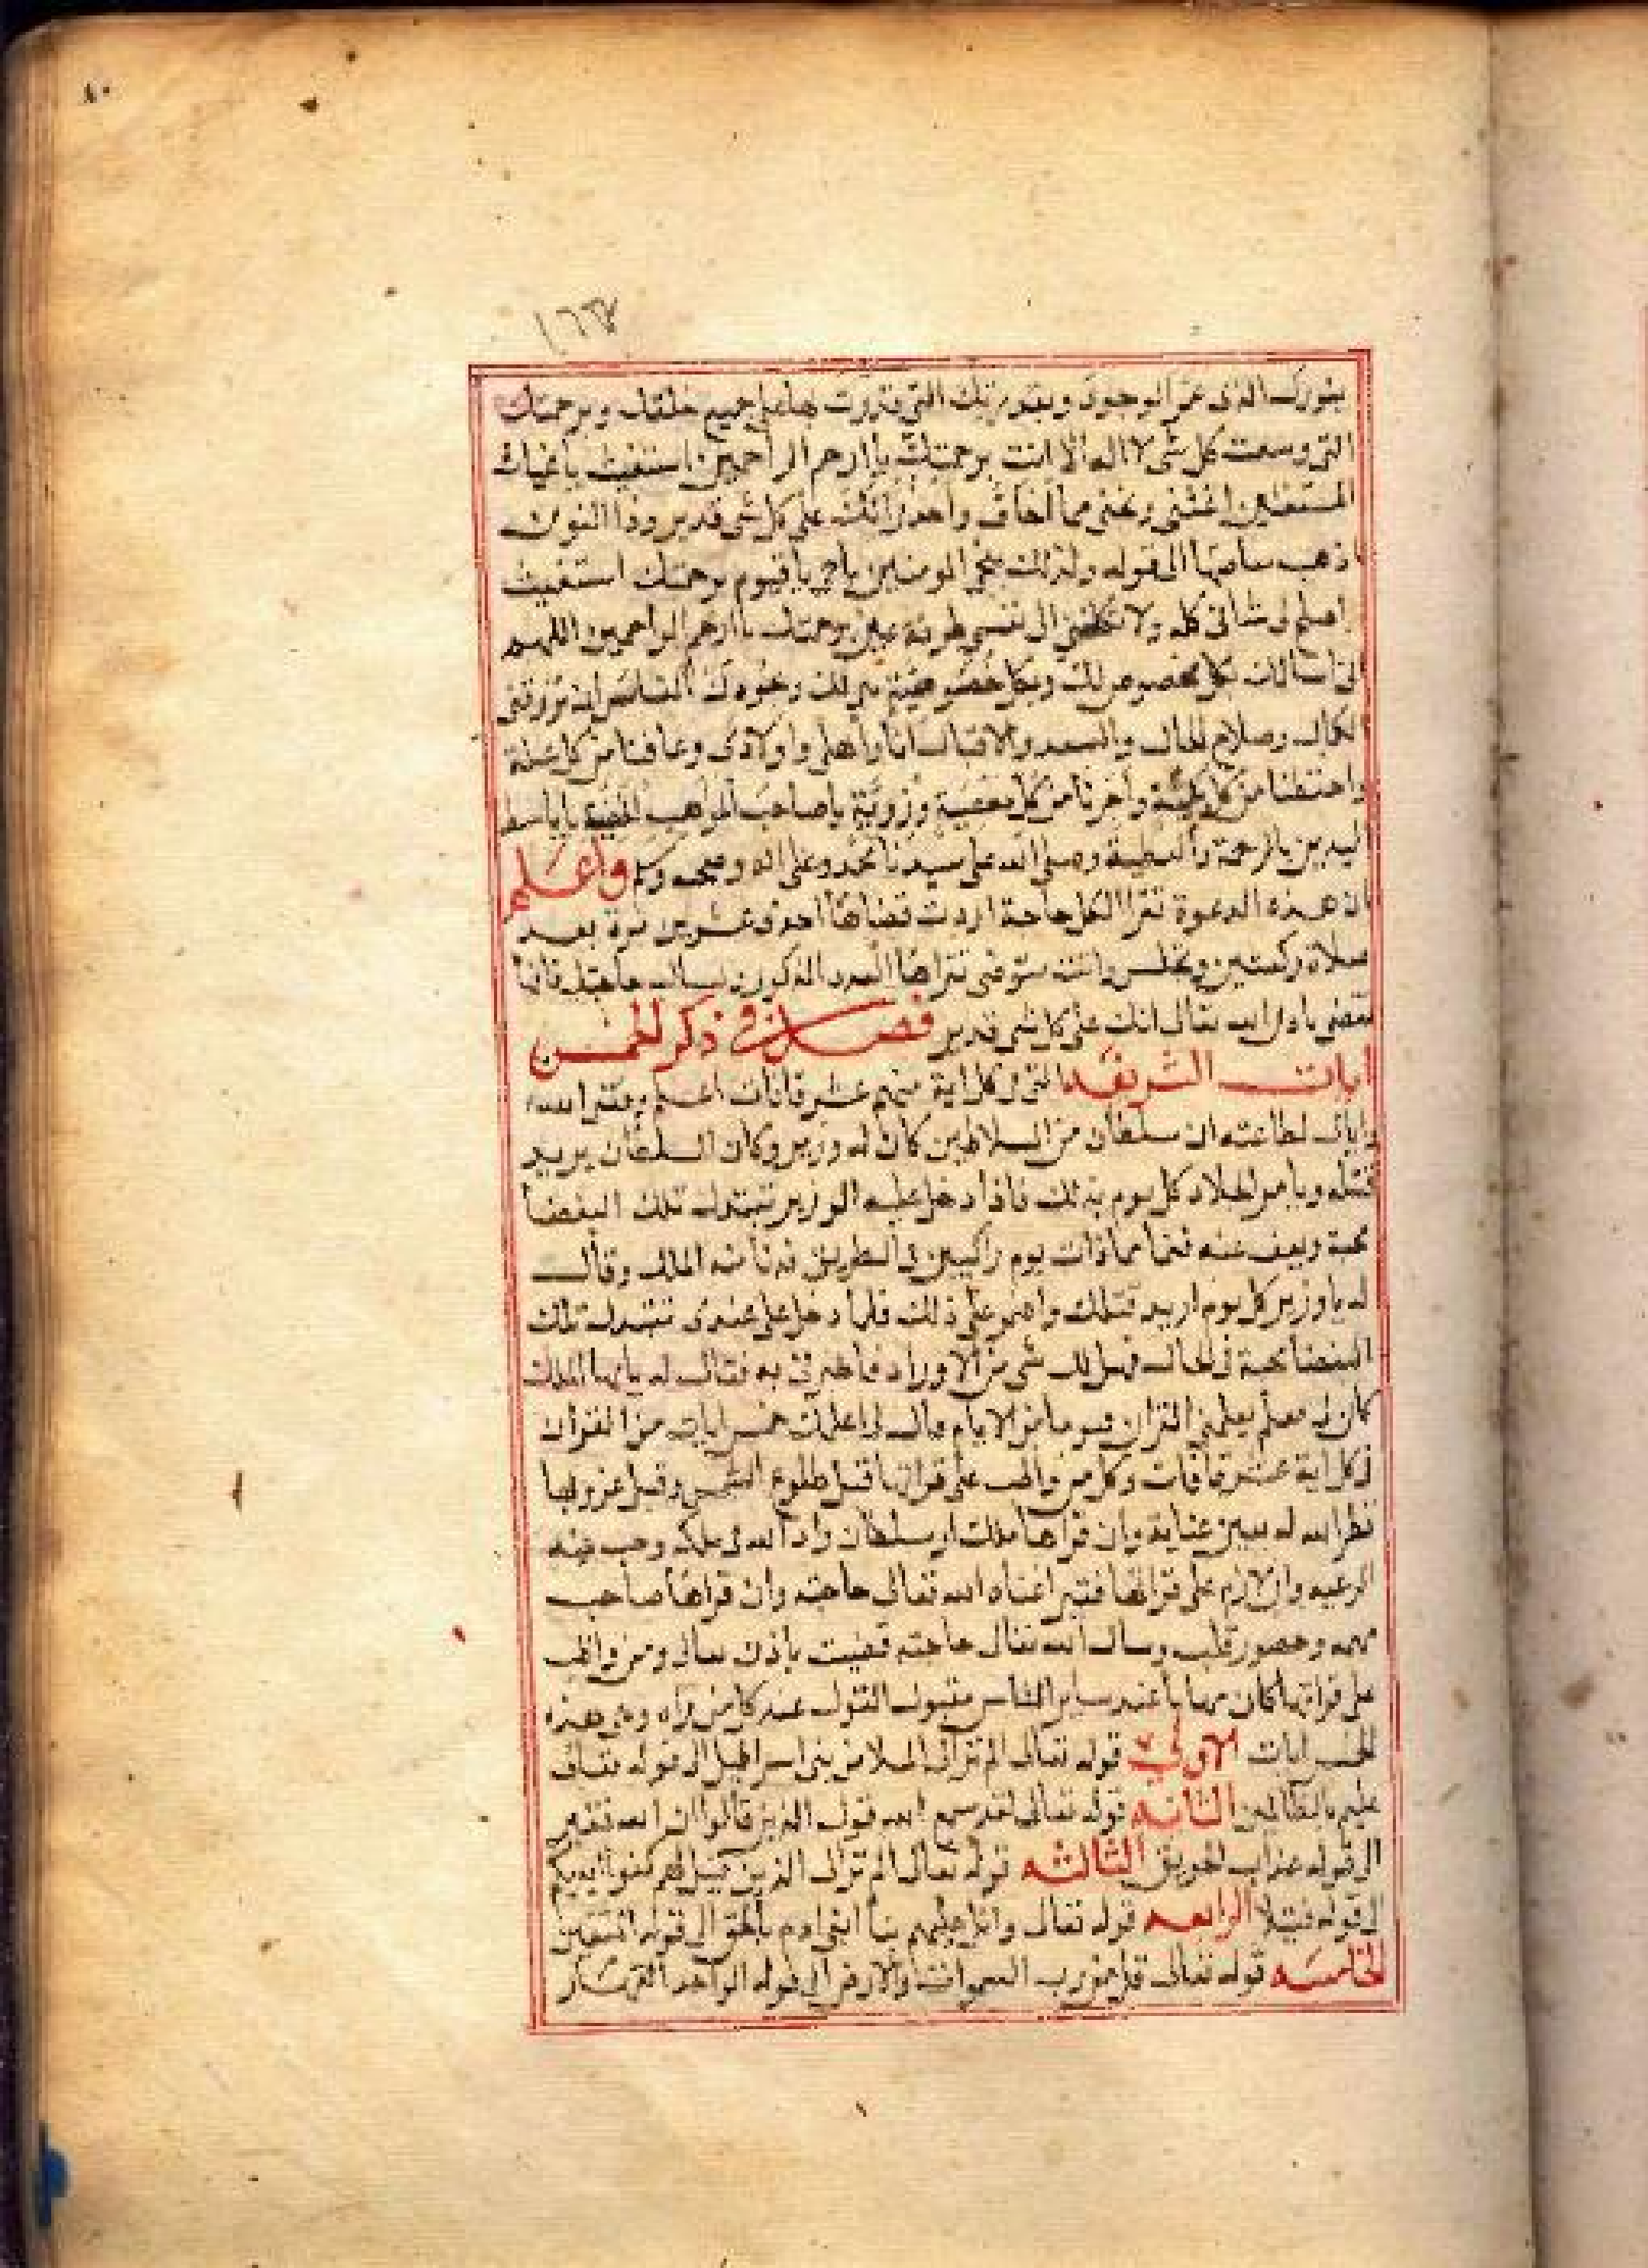 ٨٠
١٦٣
بنورك الذي عم الوجود وبقدرتك التي قدرت بها على جميع خلقك وبرحمتك
التي وسعت كل شى لا اله الا انت برحمتك يا ارحم الراحمين استغيث يا غياث
المستغيثين اغثني ونجني مما اخاف واحذر انك على كل شى قدير وذا النون
اذ ذهب مغاضبا الى قوله وكذلك ننجي المومنين يا حي يا قيوم برحمتك استغيث
اصلح لي شاني كله ولا تكلني الى نفسي طرفة عين برحمتك يا ارحم الراحمين اللهم
اني اسالك بكل مخصوص لك وبكل خصوصية ان ترزقني
الكمال وصلاح الحال والسعد والاقبال انا واهلي واولادي وعافنا من كل علة
واحفظنا من كل بلية واجرنا من كل معصية ورزية يا صاحب المواهب يا باسط
اليدين بالرحمة والعطية وصلى الله على سيدنا محمد وعلى اله وصحبه وسلم واعلم
ان هذه الدعوة تقرا لكل حاجة اردت قضاها احدى وعشرين مرة بعد
صلاة ركعتين وتجلس وانت متوضي تقراها العدد المذكور وتسال حاجتك فانها
تقضى باذن الله تعالى انك على كل شى قدير فصل في ذكر الخمس
ايات الشريفه التي في كل اية منهم عشر قافات اعلم وفقني الله
واياك لطاعته ان سلطان من السلاطين كان له وزير وكان السلطان يريد
قتله ويامر الجلاد كل يوم بذلك فاذا دخل عليه الوزير تتبدل تلك البغضا
محبة ويعف عنه فبينما هما ذات يوم راكبين في الطريق فدنا منه الملك وقال
له يا وزير كل يوم اريد قتلك واصر على ذلك فلما دخل على عندى تتبدل تلك
البغضا محبة في الحال فهل لك شى من الاوراد فاخبرني به فقال له يا ايها الملك
كان لي معلم يعلمني القران فيوما من الايام قال لي اعلمك خمس ايات من القران
في كل اية عشر قافات وكل من واظب على قراتها قبل طلوع الشمس وقبل غروبها
نظر الله له بعين عناية وان قراها ملك او سلطان زاد الله في ملكه وحب فيه
الرعيه وان لازم على قراتها فقير اغناه الله تعالى حاجته وان قراها صاحب
مهمه وحضور قلب وسال الله تعالى حاجته قضيت باذن تعالى ومن واظب
على قراتها كان مهابا عند ساير الناس مقبول القول عند كل من راه وهي هذه
الخمس ايات الاولى قوله تعالى الم تر الى الملا من بني اسرائيل الى قوله تعالى
عليم بالظالمين الثانيه قوله تعالى لقد سمع الله قول الذين قالوا ان الله فقير
الى قوله عذاب الحريق الثالثه قوله تعالى الم تر الى الذين قيل لهم كفوا ايديكم
الى قوله فتيلا الرابعه قوله تعالى واتل عليهم نبا ابني ادم بالحق الى قوله المتقين
الخامسه قوله تعالى قل من رب السموات والارض الى قوله الواحد القهار